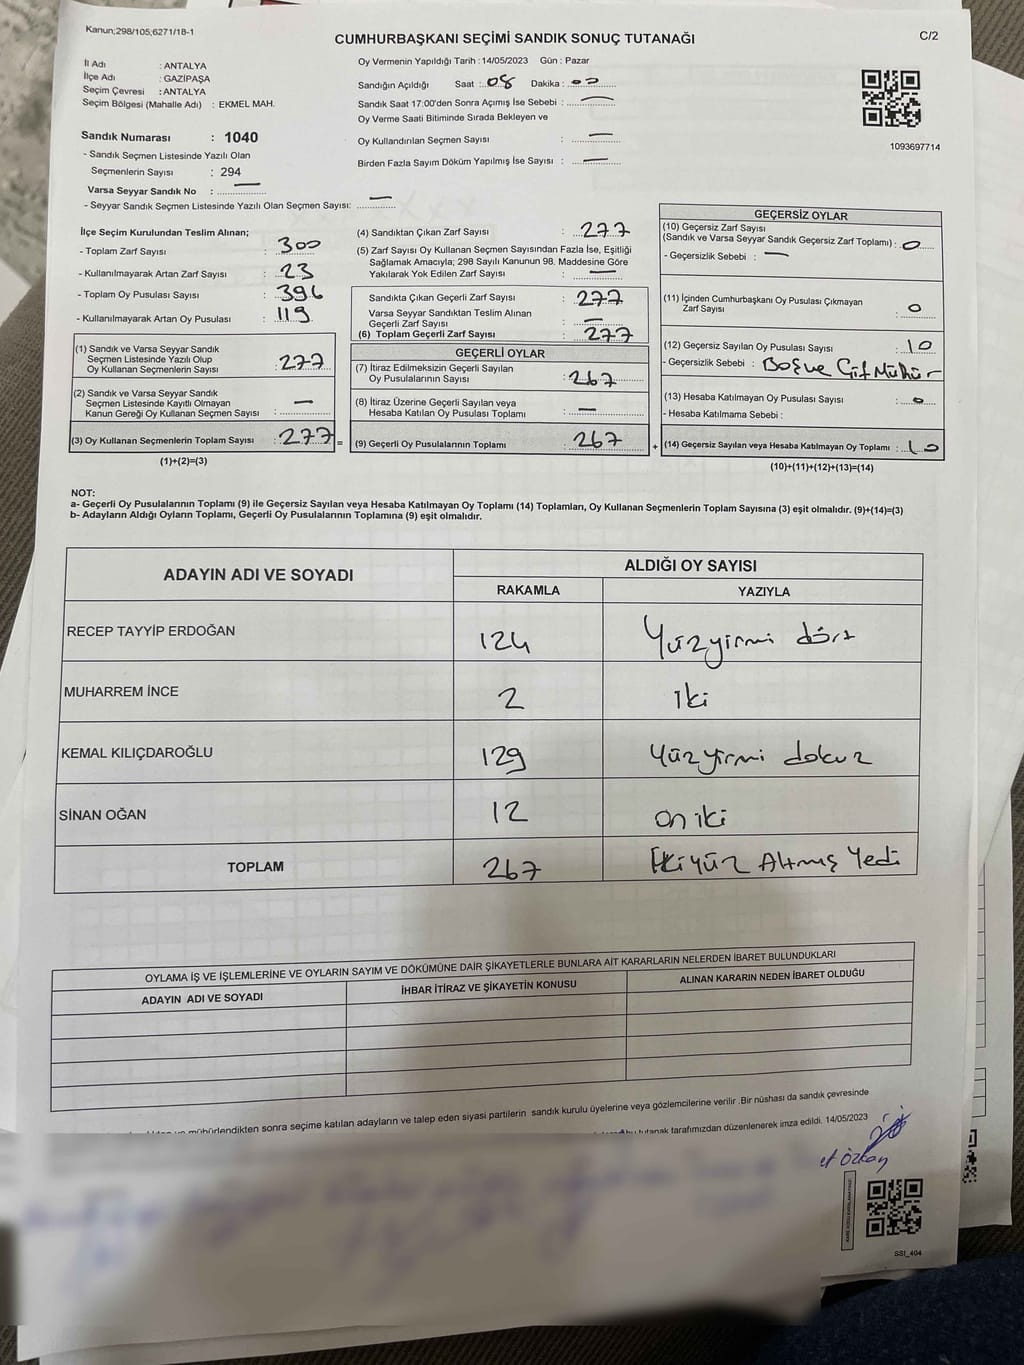 Kanun;298/105;6271/18-1
C/2
CUMHURBAŞKANI SEÇİMİ SANDIK SONUÇ TUTANAĞI
İl Adı : ANTALYA
İlçe Adı : GAZİPAŞA
Seçim Çevresi : ANTALYA
Seçim Bölgesi (Mahalle Adı) : EKMEL MAH.
Sandık Numarası : 1040
- Sandık Seçmen Listesinde Yazılı Olan
Seçmenlerin Sayısı : 294
Varsa Seyyar Sandık No : —
- Seyyar Sandık Seçmen Listesinde Yazılı Olan Seçmen Sayısı: —
Oy Vermenin Yapıldığı Tarih : 14/05/2023 Gün : Pazar
Sandığın Açıldığı Saat : 08 Dakika : 00
Sandık Saat 17:00'den Sonra Açımış İse Sebebi : —
Oy Verme Saati Bitiminde Sırada Bekleyen ve
Oy Kullandırılan Seçmen Sayısı : —
Birden Fazla Sayım Döküm Yapılmış İse Sayısı : —
1093697714
İlçe Seçim Kurulundan Teslim Alınan;
- Toplam Zarf Sayısı : 300
- Kullanılmayarak Artan Zarf Sayısı : 23
- Toplam Oy Pusulası Sayısı : 396
- Kullanılmayarak Artan Oy Pusulası : 119
(1) Sandık ve Varsa Seyyar Sandık
Seçmen Listesinde Yazılı Olup
Oy Kullanan Seçmenlerin Sayısı : 277
(2) Sandık ve Varsa Seyyar Sandık
Seçmen Listesinde Kayıtlı Olmayan
Kanun Gereği Oy Kullanan Seçmen Sayısı : —
(3) Oy Kullanan Seçmenlerin Toplam Sayısı : 277 =
(1)+(2)=(3)
(4) Sandıktan Çıkan Zarf Sayısı : 277
(5) Zarf Sayısı Oy Kullanan Seçmen Sayısından Fazla İse, Eşitliği
Sağlamak Amacıyla; 298 Sayılı Kanunun 98. Maddesine Göre
Yakılarak Yok Edilen Zarf Sayısı : —
Sandıkta Çıkan Geçerli Zarf Sayısı : 277
Varsa Seyyar Sandıktan Teslim Alınan
Geçerli Zarf Sayısı : —
(6) Toplam Geçerli Zarf Sayısı : 277
GEÇERLİ OYLAR
(7) İtiraz Edilmeksizin Geçerli Sayılan
Oy Pusulalarının Sayısı : 267
(8) İtiraz Üzerine Geçerli Sayılan veya
Hesaba Katılan Oy Pusulası Toplamı : —
(9) Geçerli Oy Pusulalarının Toplamı : 267 +
GEÇERSİZ OYLAR
(10) Geçersiz Zarf Sayısı
(Sandık ve Varsa Seyyar Sandık Geçersiz Zarf Toplamı) : 0
- Geçersizlik Sebebi : —
(11) İçinden Cumhurbaşkanı Oy Pusulası Çıkmayan
Zarf Sayısı : 0
(12) Geçersiz Sayılan Oy Pusulası Sayısı : 10
- Geçersizlik Sebebi : Boş ve Çift Mühür
(13) Hesaba Katılmayan Oy Pusulası Sayısı : 0
- Hesaba Katılmama Sebebi :
(14) Geçersiz Sayılan veya Hesaba Katılmayan Oy Toplamı : 10
(10)+(11)+(12)+(13)=(14)
NOT:
a- Geçerli Oy Pusulalarının Toplamı (9) ile Geçersiz Sayılan veya Hesaba Katılmayan Oy Toplamı (14) Toplamları, Oy Kullanan Seçmenlerin Toplam Sayısına (3) eşit olmalıdır. (9)+(14)=(3)
b- Adayların Aldığı Oyların Toplamı, Geçerli Oy Pusulalarının Toplamına (9) eşit olmalıdır.
ADAYIN ADI VE SOYADI
ALDIĞI OY SAYISI
RAKAMLA YAZIYLA
RECEP TAYYİP ERDOĞAN 124 Yüzyirmi dört
MUHARREM İNCE 2 iki
KEMAL KILIÇDAROĞLU 129 Yüzyirmi dokuz
SİNAN OĞAN 12 on iki
TOPLAM 267 İkiyüz Altmış Yedi
OYLAMA İŞ VE İŞLEMLERİNE VE OYLARIN SAYIM VE DÖKÜMÜNE DAİR ŞİKAYETLERLE BUNLARA AİT KARARLARIN NELERDEN İBARET BULUNDUKLARI
ADAYIN ADI VE SOYADI İHBAR İTİRAZ VE ŞİKAYETİN KONUSU ALINAN KARARIN NEDEN İBARET OLDUĞU
mühürlendikten sonra seçime katılan adayların ve talep eden siyasi partilerin sandık kurulu üyelerine veya gözlemcilerine verilir .Bir nüshası da sandık çevresinde
bu tutanak tarafımızdan düzenlenerek imza edildi. 14/05/2023
et Özkan
SSI_404